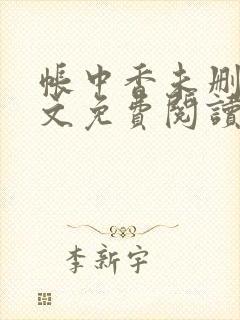 帳中香未删
文免費閱讀
李新宇